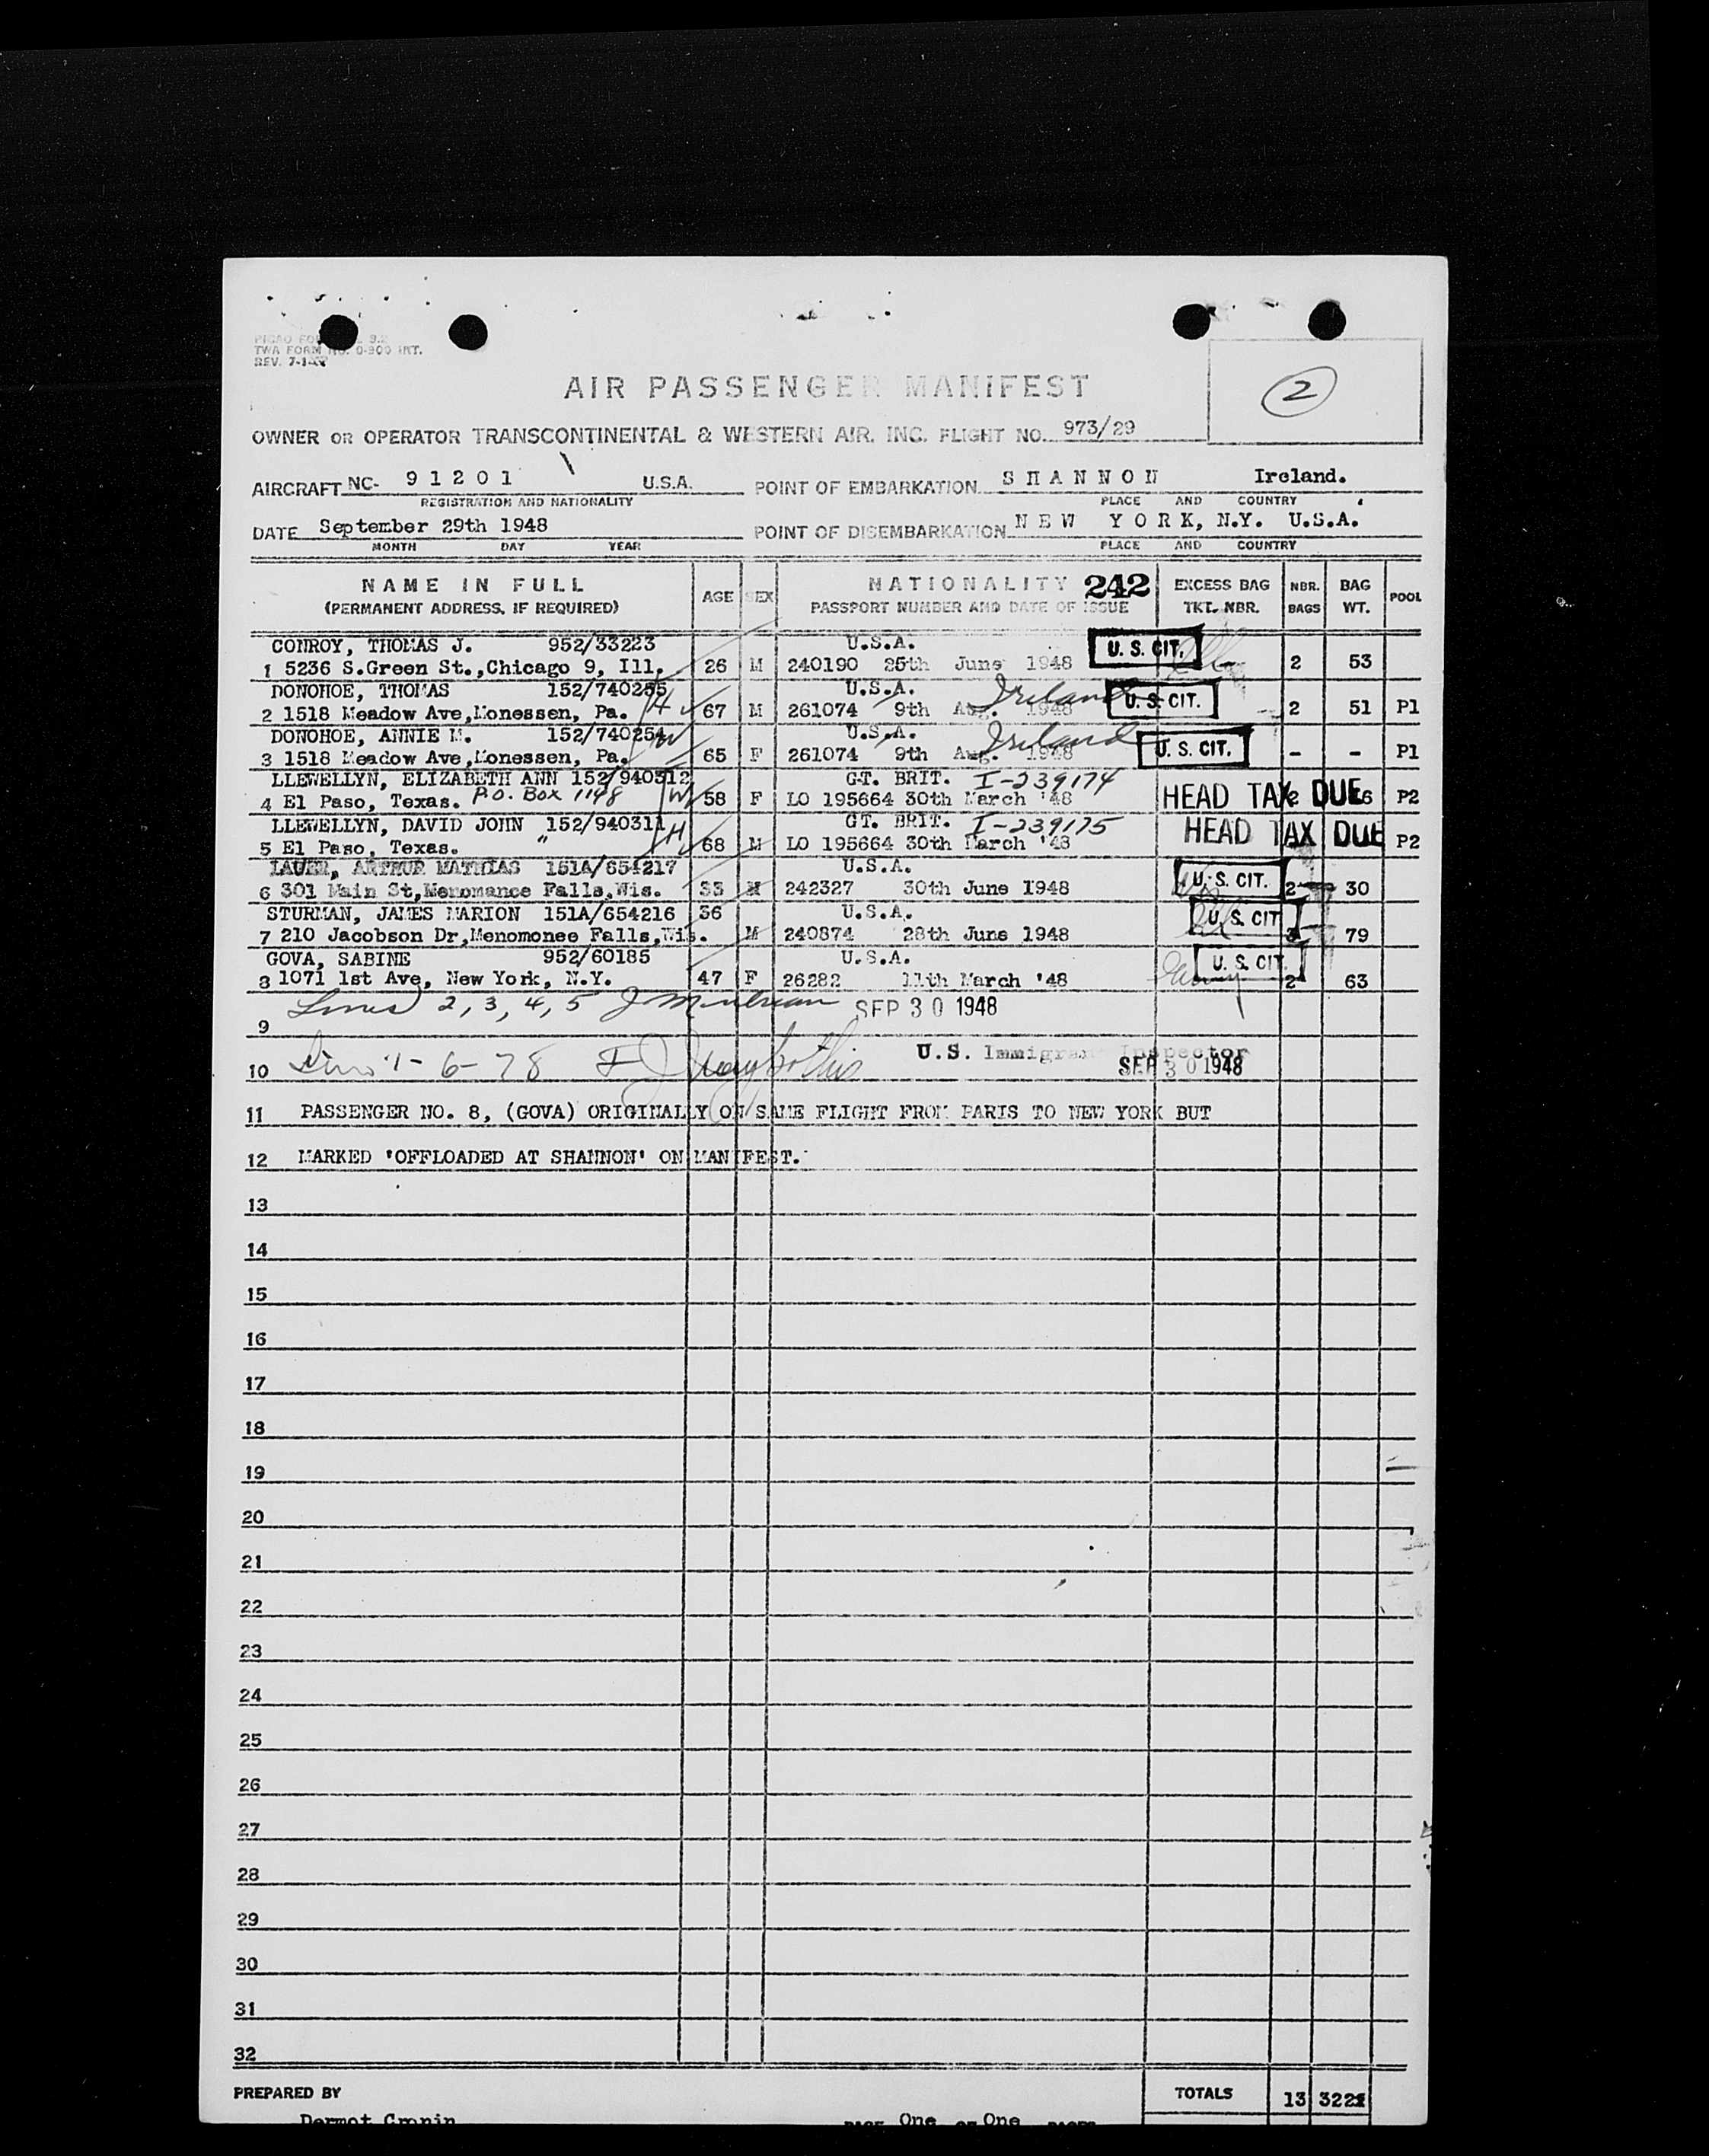 TWA FORM NO. 0-900 INT.
REV. 7-1-
AIR PASSENGER MANIFEST
2
OWNER OR OPERATOR TRANSCONTINENTAL & WESTERN AIR, INC. FLIGHT NO. 973/29
AIRCRAFT NC- 9 1 2 0 1 U.S.A. POINT OF EMBARKATION S H A N N O N Ireland.
REGISTRATION AND NATIONALITY PLACE AND COUNTRY
DATE September 29th 1948 POINT OF DISEMBARKATION N E W Y O R K, N.Y. U.S.A.
MONTH DAY YEAR PLACE AND COUNTRY
NAME IN FULL AGE SEX NATIONALITY 242 EXCESS BAG NBR. BAG POOL
(PERMANENT ADDRESS, IF REQUIRED) PASSPORT NUMBER AND DATE OF ISSUE TKT. NBR. BAGS WT.
CONROY, THOMAS J. 952/33223 U.S.A. U. S. CIT.
1 5236 S.Green St.,Chicago 9, Ill. 26 M 240190 25th June 1948 2 53
DONOHOE, THOMAS 152/740255 U.S.A. Ireland U. S. CIT.
2 1518 Meadow Ave,Monessen, Pa. H 67 M 261074 9th Aug. 1948 2 51 P1
DONOHOE, ANNIE M. 152/740254 W U.S.A. Ireland U. S. CIT.
3 1518 Meadow Ave,Monessen, Pa. 65 F 261074 9th Aug. 1948 - - P1
LLEWELLYN, ELIZABETH ANN 152/940312 GT. BRIT. I-239174
4 El Paso, Texas. P.O. Box 1148 W 58 F LO 195664 30th March '48 HEAD TAX DUE P2
LLEWELLYN, DAVID JOHN 152/940311 GT. BRIT. I-239175
5 El Paso, Texas. " H 68 M LO 195664 30th March '48 HEAD TAX DUE P2
LAUER, ARTHUR MATHIAS 151A/654217 U.S.A. U. S. CIT.
6 301 Main St,Menomance Falls,Wis. 33 M 242327 30th June 1948 2 30
STURMAN, JAMES MARION 151A/654216 36 U.S.A. U. S. CIT
7 210 Jacobson Dr,Menomonee Falls,Wis. M 240874 28th June 1948 79
GOVA, SABINE 952/60185 U.S.A. U. S. CIT.
8 1071 1st Ave, New York, N.Y. 47 F 26282 11th March '48 2 63
Lines 2, 3, 4, 5 SEP 30 1948
9
U.S. Immigrant Inspector
10 1-6-78 SEP 30 1948
11 PASSENGER NO. 8, (GOVA) ORIGINALLY ON SAME FLIGHT FROM PARIS TO NEW YORK BUT
12 MARKED 'OFFLOADED AT SHANNON' ON MANIFEST.
13
14
15
16
17
18
19
20
21
22
23
24
25
26
27
28
29
30
31
32
PREPARED BY TOTALS 13
Dermot Cronin PAGE One OF One PAGES